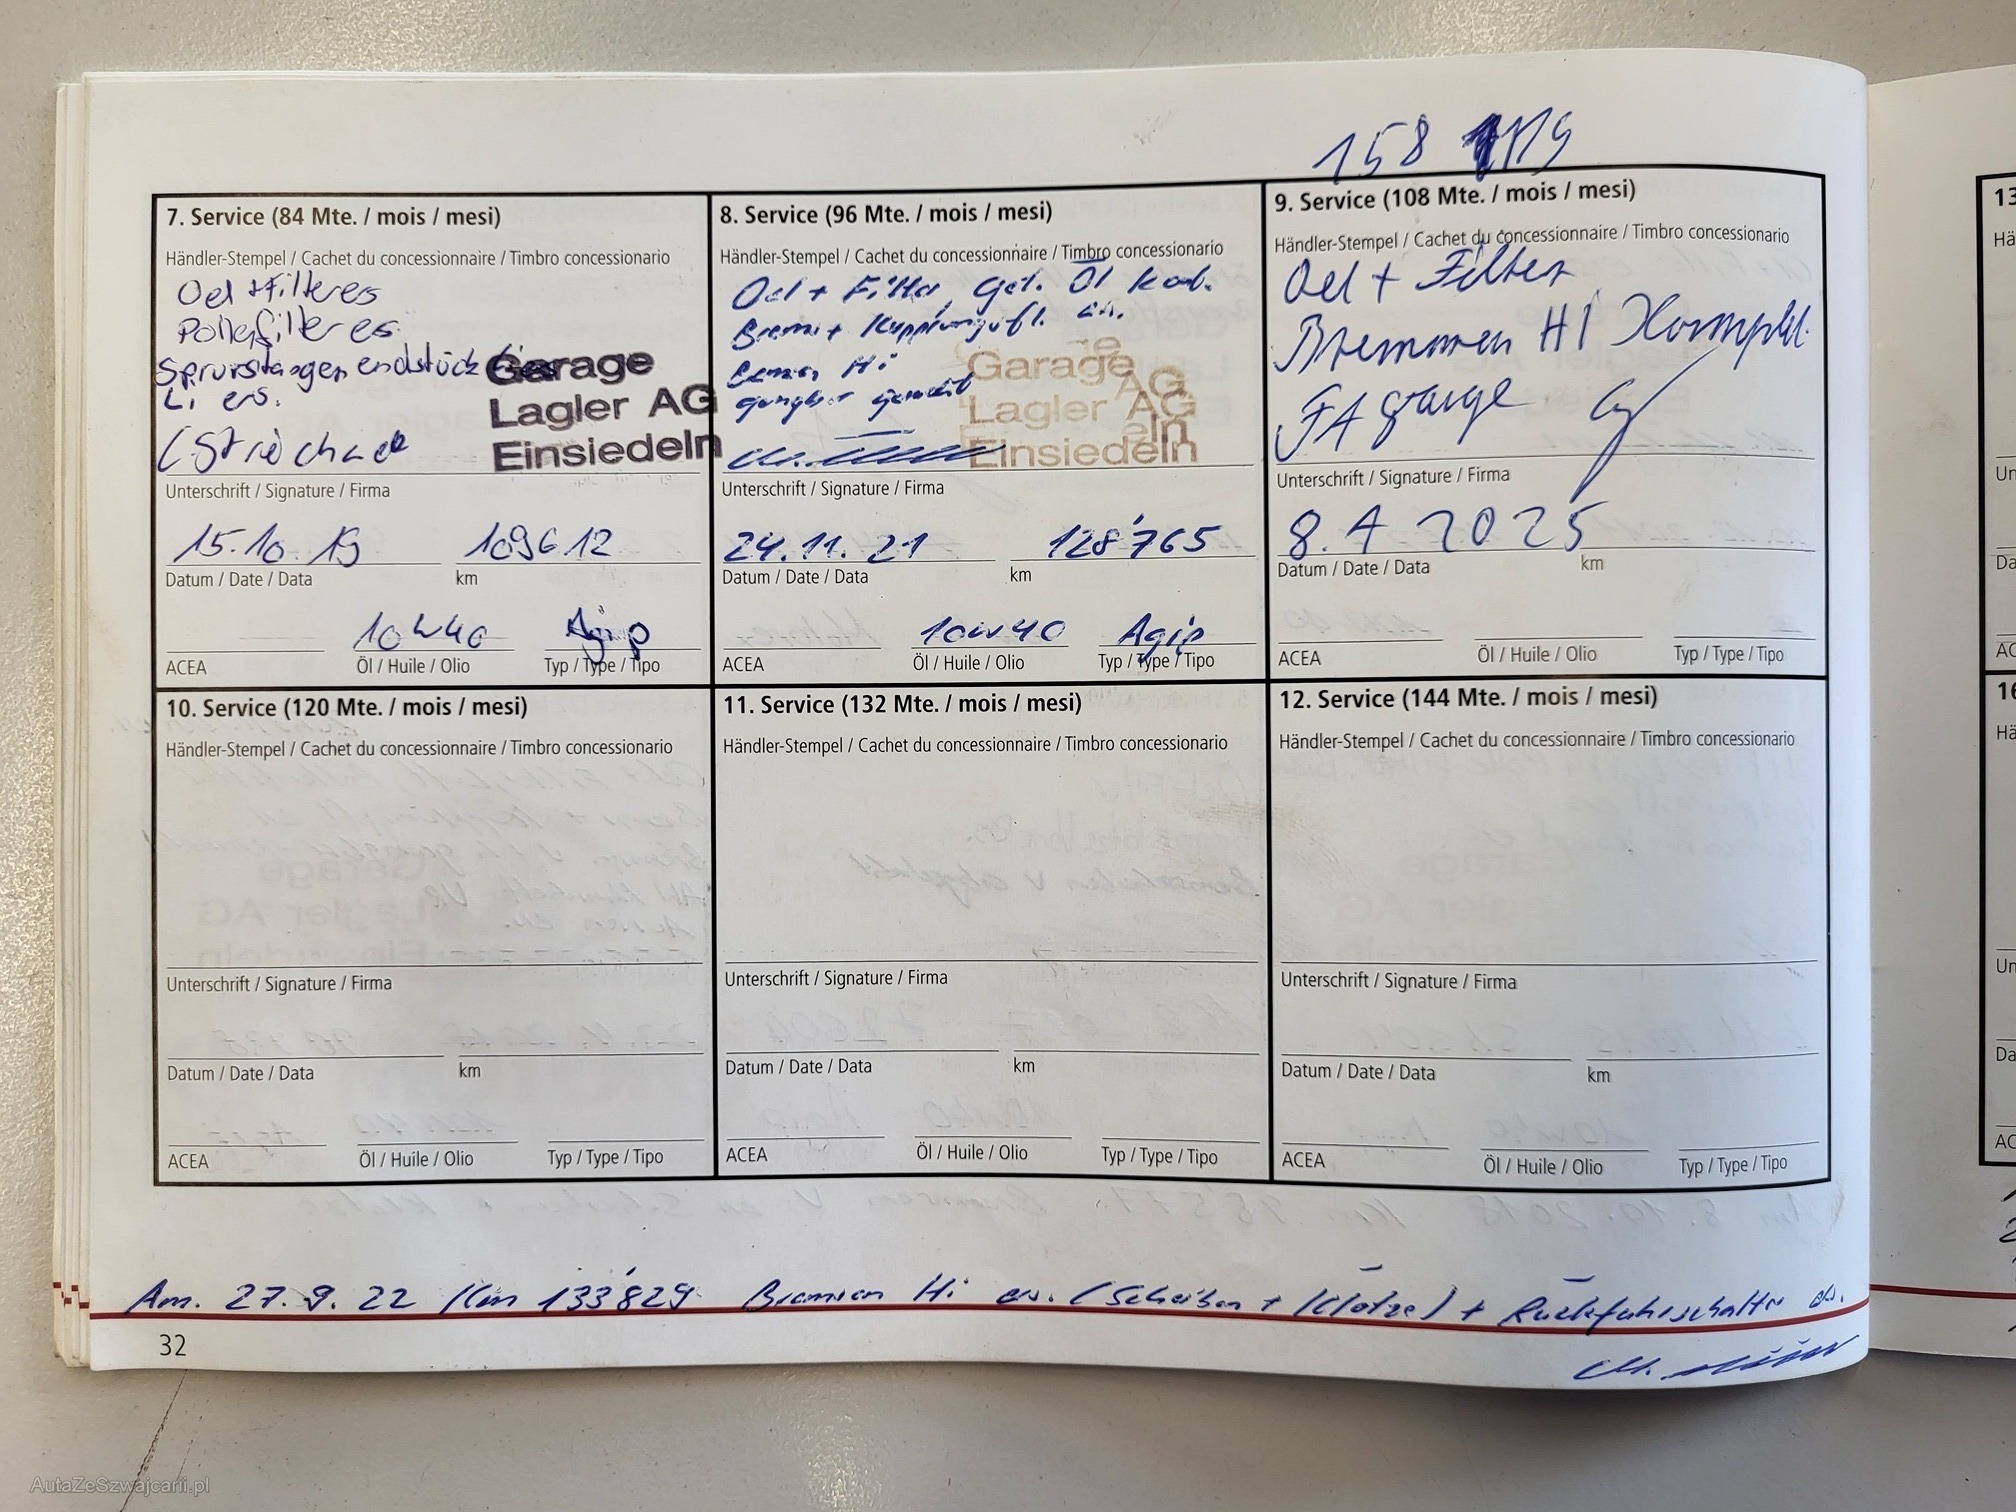 158 119
7. Service (84 Mte. / mois / mesi)
Händler-Stempel / Cachet du concessionnaire / Timbro concessionario
Oel + Filter es
Pollenfilter es
Spurstangenendstück
Li ers.
Garage
Lagler AG
Einsiedeln
Unterschrift / Signature / Firma
15.10.19 109612
Datum / Date / Data km
10w40 Agip
ACEA Öl / Huile / Olio Typ / Type / Tipo
8. Service (96 Mte. / mois / mesi)
Händler-Stempel / Cachet du concessionnaire / Timbro concessionario
Oel + Filter, Get. Öl kont.
Brems + Kupplungsfl. en.
Bremsen Hi
gangbar gemacht
Garage
Lagler AG
Einsiedeln
Unterschrift / Signature / Firma
24.11.21 128'765
Datum / Date / Data km
10w40 Agip
ACEA Öl / Huile / Olio Typ / Type / Tipo
9. Service (108 Mte. / mois / mesi)
Händler-Stempel / Cachet du concessionnaire / Timbro concessionario
Oel + Filter
Bremsen HI Kompl.
FA garage
Unterschrift / Signature / Firma
8.4 2025
Datum / Date / Data km
ACEA Öl / Huile / Olio Typ / Type / Tipo
10. Service (120 Mte. / mois / mesi)
Händler-Stempel / Cachet du concessionnaire / Timbro concessionario
Unterschrift / Signature / Firma
Datum / Date / Data km
ACEA Öl / Huile / Olio Typ / Type / Tipo
11. Service (132 Mte. / mois / mesi)
Händler-Stempel / Cachet du concessionnaire / Timbro concessionario
Unterschrift / Signature / Firma
Datum / Date / Data km
ACEA Öl / Huile / Olio Typ / Type / Tipo
12. Service (144 Mte. / mois / mesi)
Händler-Stempel / Cachet du concessionnaire / Timbro concessionario
Unterschrift / Signature / Firma
Datum / Date / Data km
ACEA Öl / Huile / Olio Typ / Type / Tipo
Am. 27.9.22 Km 133'829 Bremsen Hi ers. (Scheiben + Klötze) + Rückfahrschalter ers.
32
AutaZeSzwajcarii.pl